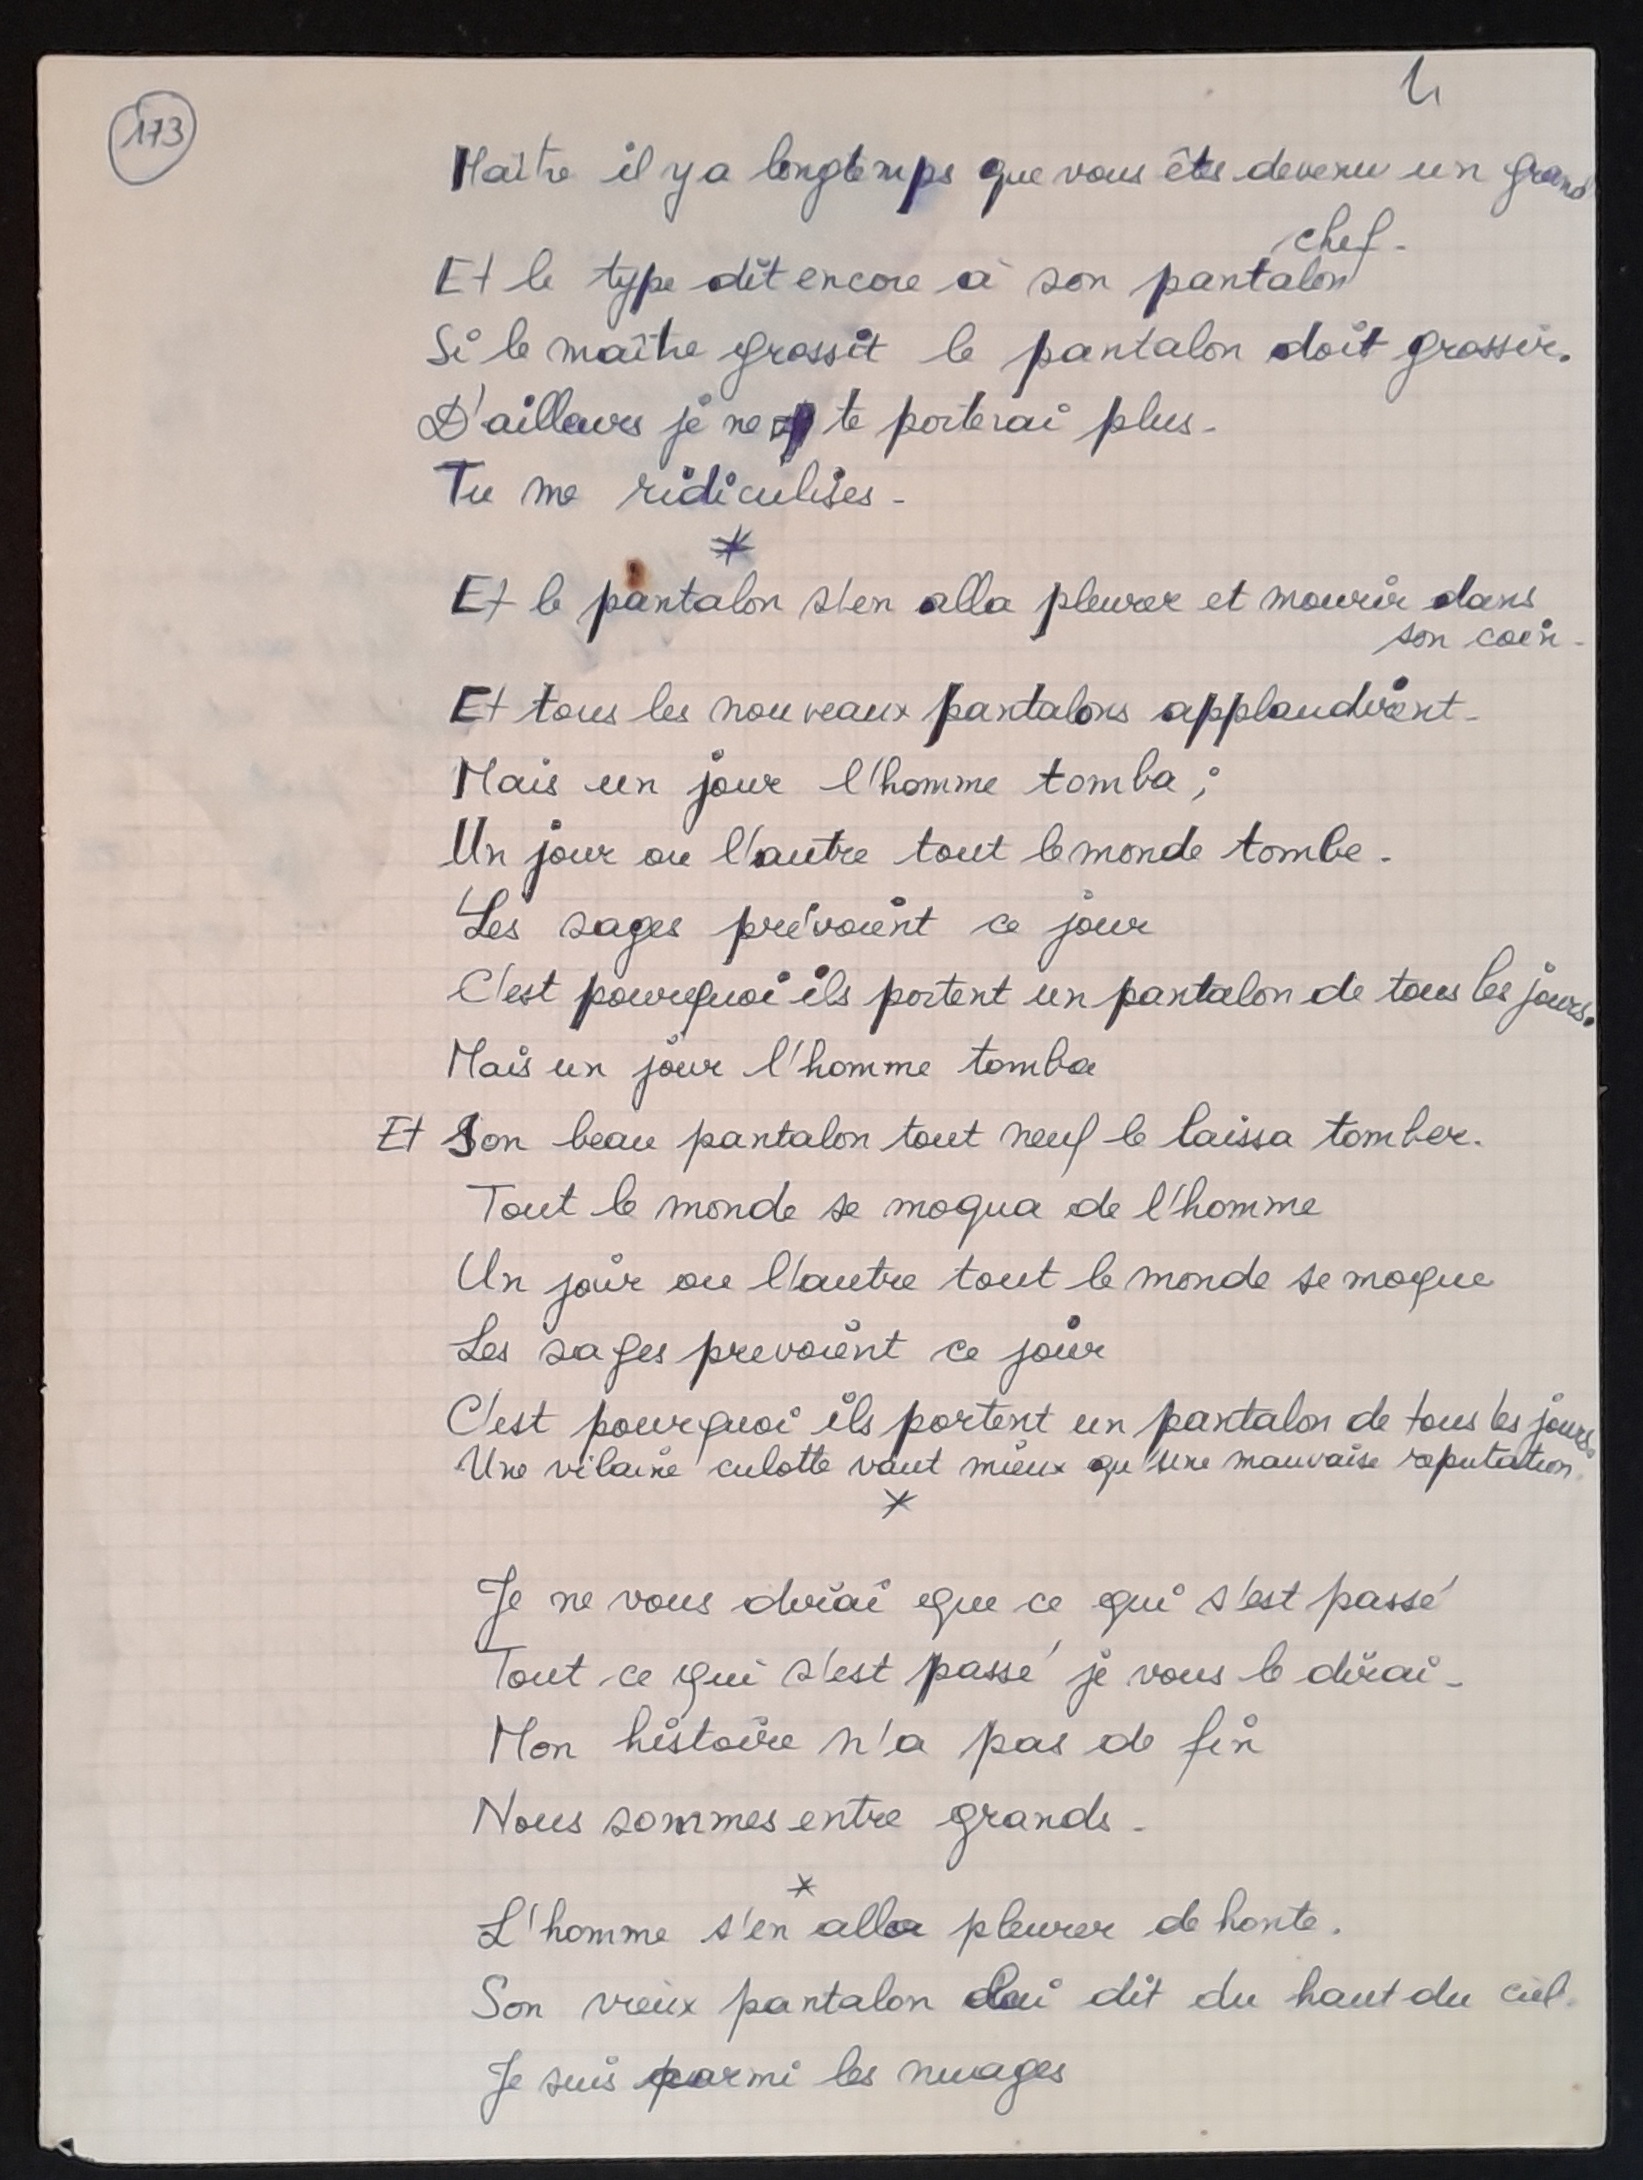 173
Maître il y a longtemps que vous êtes devenu un grand
chef -
Et le type dit encore à son pantalon
Si le maître grossit le pantalon doit grossir.
D'ailleurs je ne te porterai plus -
Tu me ridiculises -
*
Et le pantalon s'en alla pleurer et mourir dans
son coin -
Et tous les nouveaux pantalons applaudirent -
Mais un jour l'homme tomba ;
Un jour ou l'autre tout le monde tombe .
Les sages prévoient ce jour
C'est pourquoi ils portent un pantalon de tous les jours.
Mais un jour l'homme tomba
Et Son beau pantalon tout neuf le laissa tomber.
Tout le monde se moqua de l'homme
Un jour ou l'autre tout le monde se moque
Les sages prevoient ce jour
C'est pourquoi ils portent un pantalon de tous les jours.
Une vilaine culotte vaut mieux qu'une mauvaise reputation.
*
Je ne vous dirai que ce qui s'est passé
Tout ce qui s'est passé je vous le dirai -
Mon histoire n'a pas de fin
Nous sommes entre grands -
*
L'homme s'en alla pleurer de honte .
Son vieux pantalon lui dit du haut du ciel.
Je suis parmi les nuages